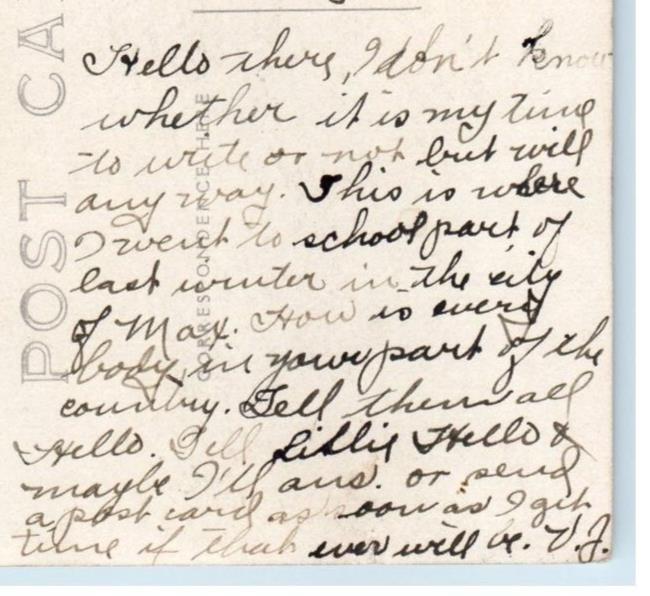 POST CA
CORRESPONDENCE HERE
Hello there, I don't know
whether it is my time
to write or not but will
any way. This is where
I went to school part of
last winter in the city
of Max. How is every
body in your part of the
country. Tell them all
Hello. Tell Lillie Hello &
maybe I'll ans. or send
a post card as soon as I get
time if that ever will be. V.J.